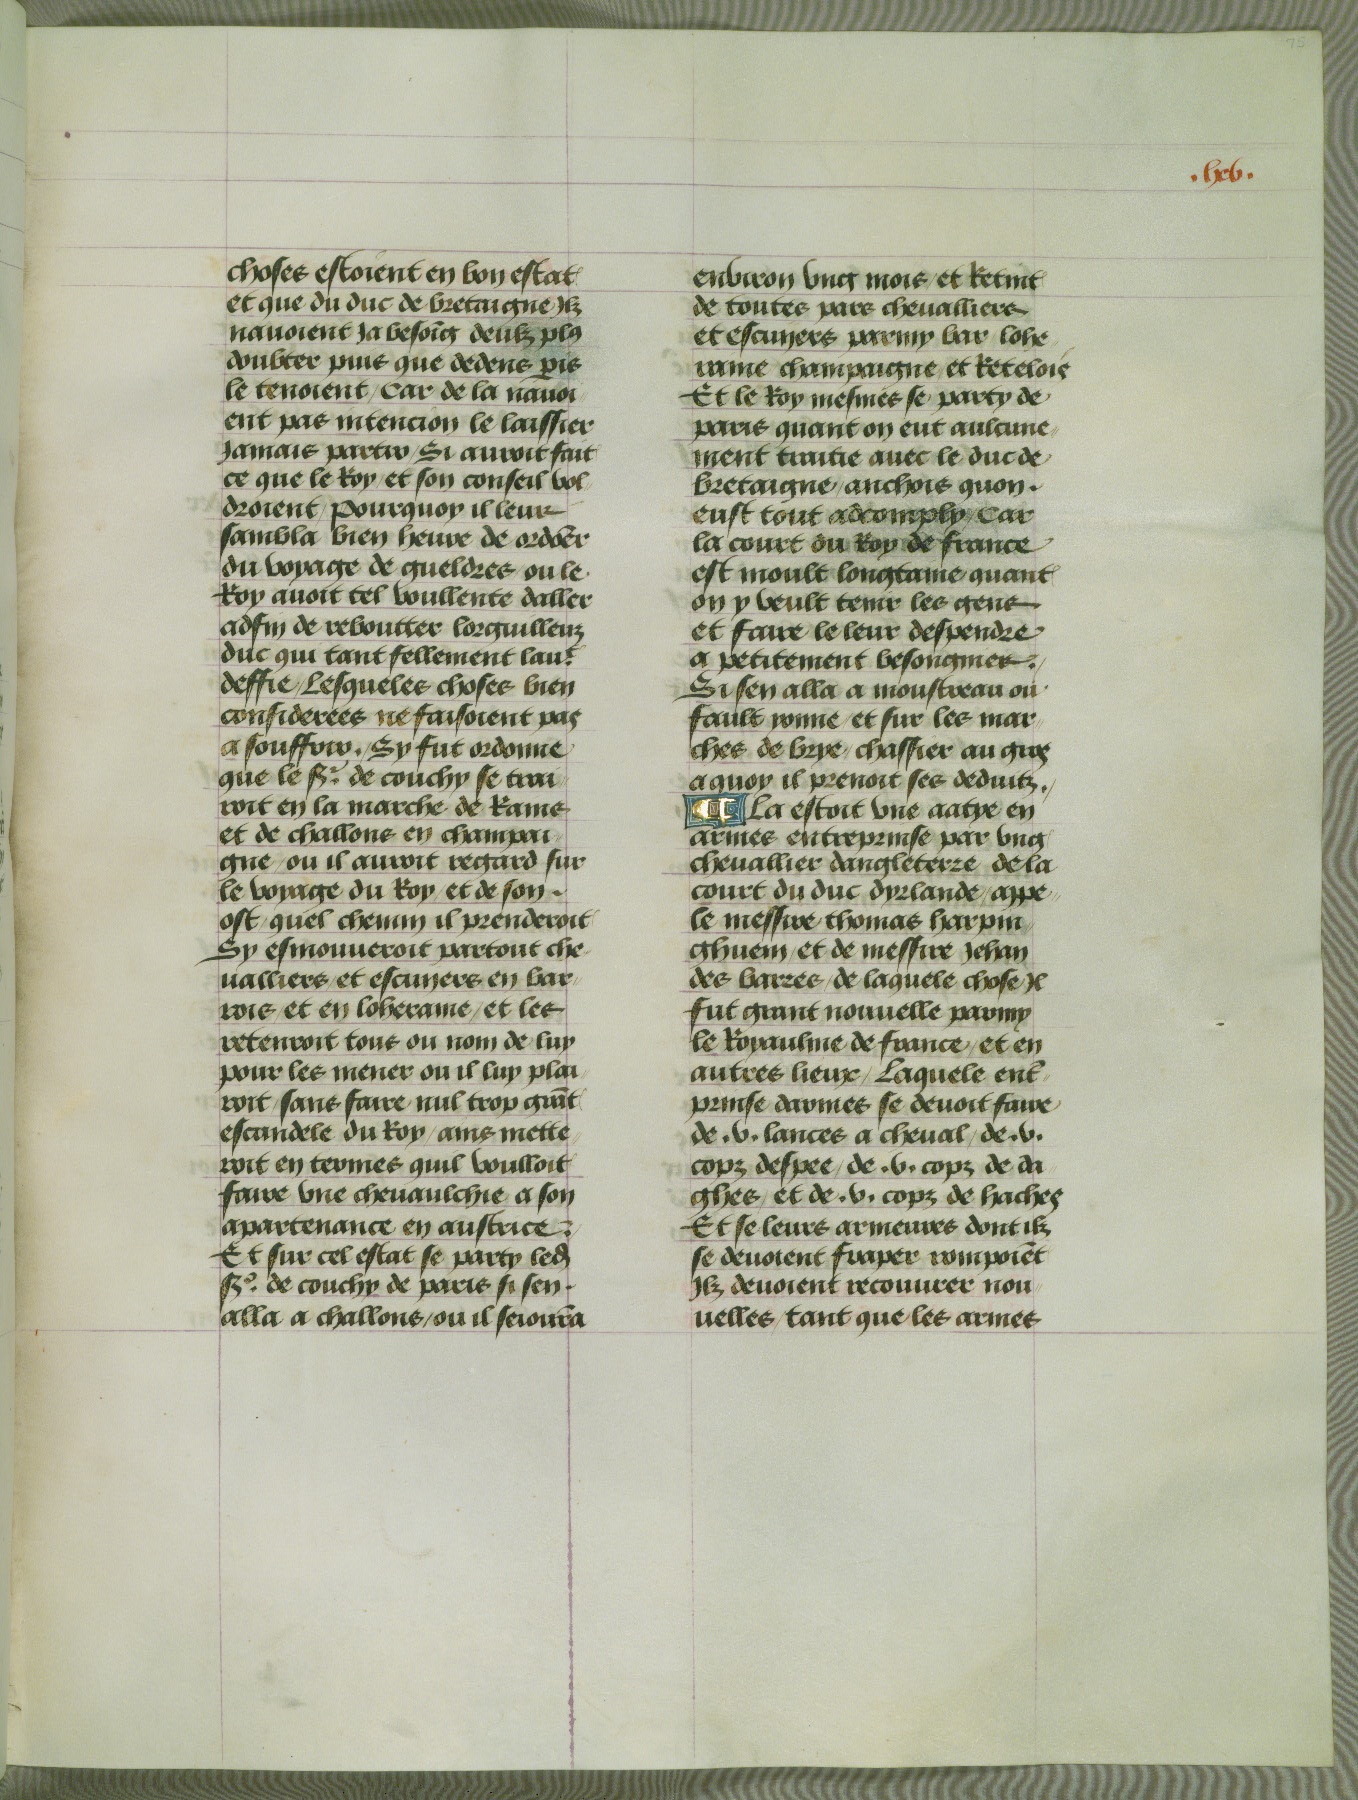 75
.lxv.
choses estoient en bon estat
et que du duc de bretaigne Jlz
nauoient Ja besoīg deulz plꝯ
doubter puis que dedens ꝑis
le tenoient / Car de la nauoi
ent pas intencion le laissier
Jamais partir / Si auroit fait
ce que le Roy et son conseil vol
droient / Pourquoy il leur
sambla bien heure de ordōer
du voyage de gueldres ou le
Roy auoit tel voullente daller
adfin de reboutter lorguilleuz
duc qui tant fellement lauͬt
deffie / Lesqueles choses bien
considerees ne faisoient pas
a souffrir. / Sy fut ordonne
que le Sʳ. de couchy se trai
roit en la marche de Rains
et de challons en champai
gne / ou il auroit regard sur
le voyage du Roy / et de son
ost / quel chemin il prenderoit
Sy esmouueroit partout che
ualliers et escuyers en bar
rois / et en loheraine / et les
retenroit tous ou nom de luy
pour les mener ou il luy plai
roit / sans faire nul trop grāt
escandele du Roy / ains mette
roit en termes quil voulloit
faire vne cheuaulchie a son
apartenance en austrice.
Et sur cel estat se party led
Sʳ. de couchy de paris si sen
alla a challons / ou il seiourna
enuiron vng mois / et Retint
de toutes pars cheualliers
et escuyers parmy bar lohe
raine champaigne et Retelois
Et le Roy mesmes se party de
paris quant on eut aulcune
ment traitie auec le duc de
bretaigne / anchois quon
eust tout adcomply / Car
la court du Roy de france
est moult longtaine quant
on y veult tenir les gens
et faire le leur despendre
a petitement besongnier.
Si sen alla a moustreau ou
fault yonne / et sur les mar
ches de brye / chassier au gras
a quoy il prenoit ses deduitz.
La estoit vne aatye en
armes entreprinse par vng
cheuallier dangleterre de la
court du duc dyrlande / appe
le messire thomas harpin
ghuem / et de messire Jehan
des barres / de laquele chose Jl
fut grant nouuelle parmy
le Royaulme de france / et en
autres lieux / Laquele ent̄
prinse darmes se deuoit faire
de .v. lances a cheual / de .v.
copz despee / de .v. copz de da
ghes / et de .v. copz de haches
Et se leurs armeures dont ilz
se deuoient fraper rompoiēt
Jlz deuoient recouurer nou
uelles / tant que les armes